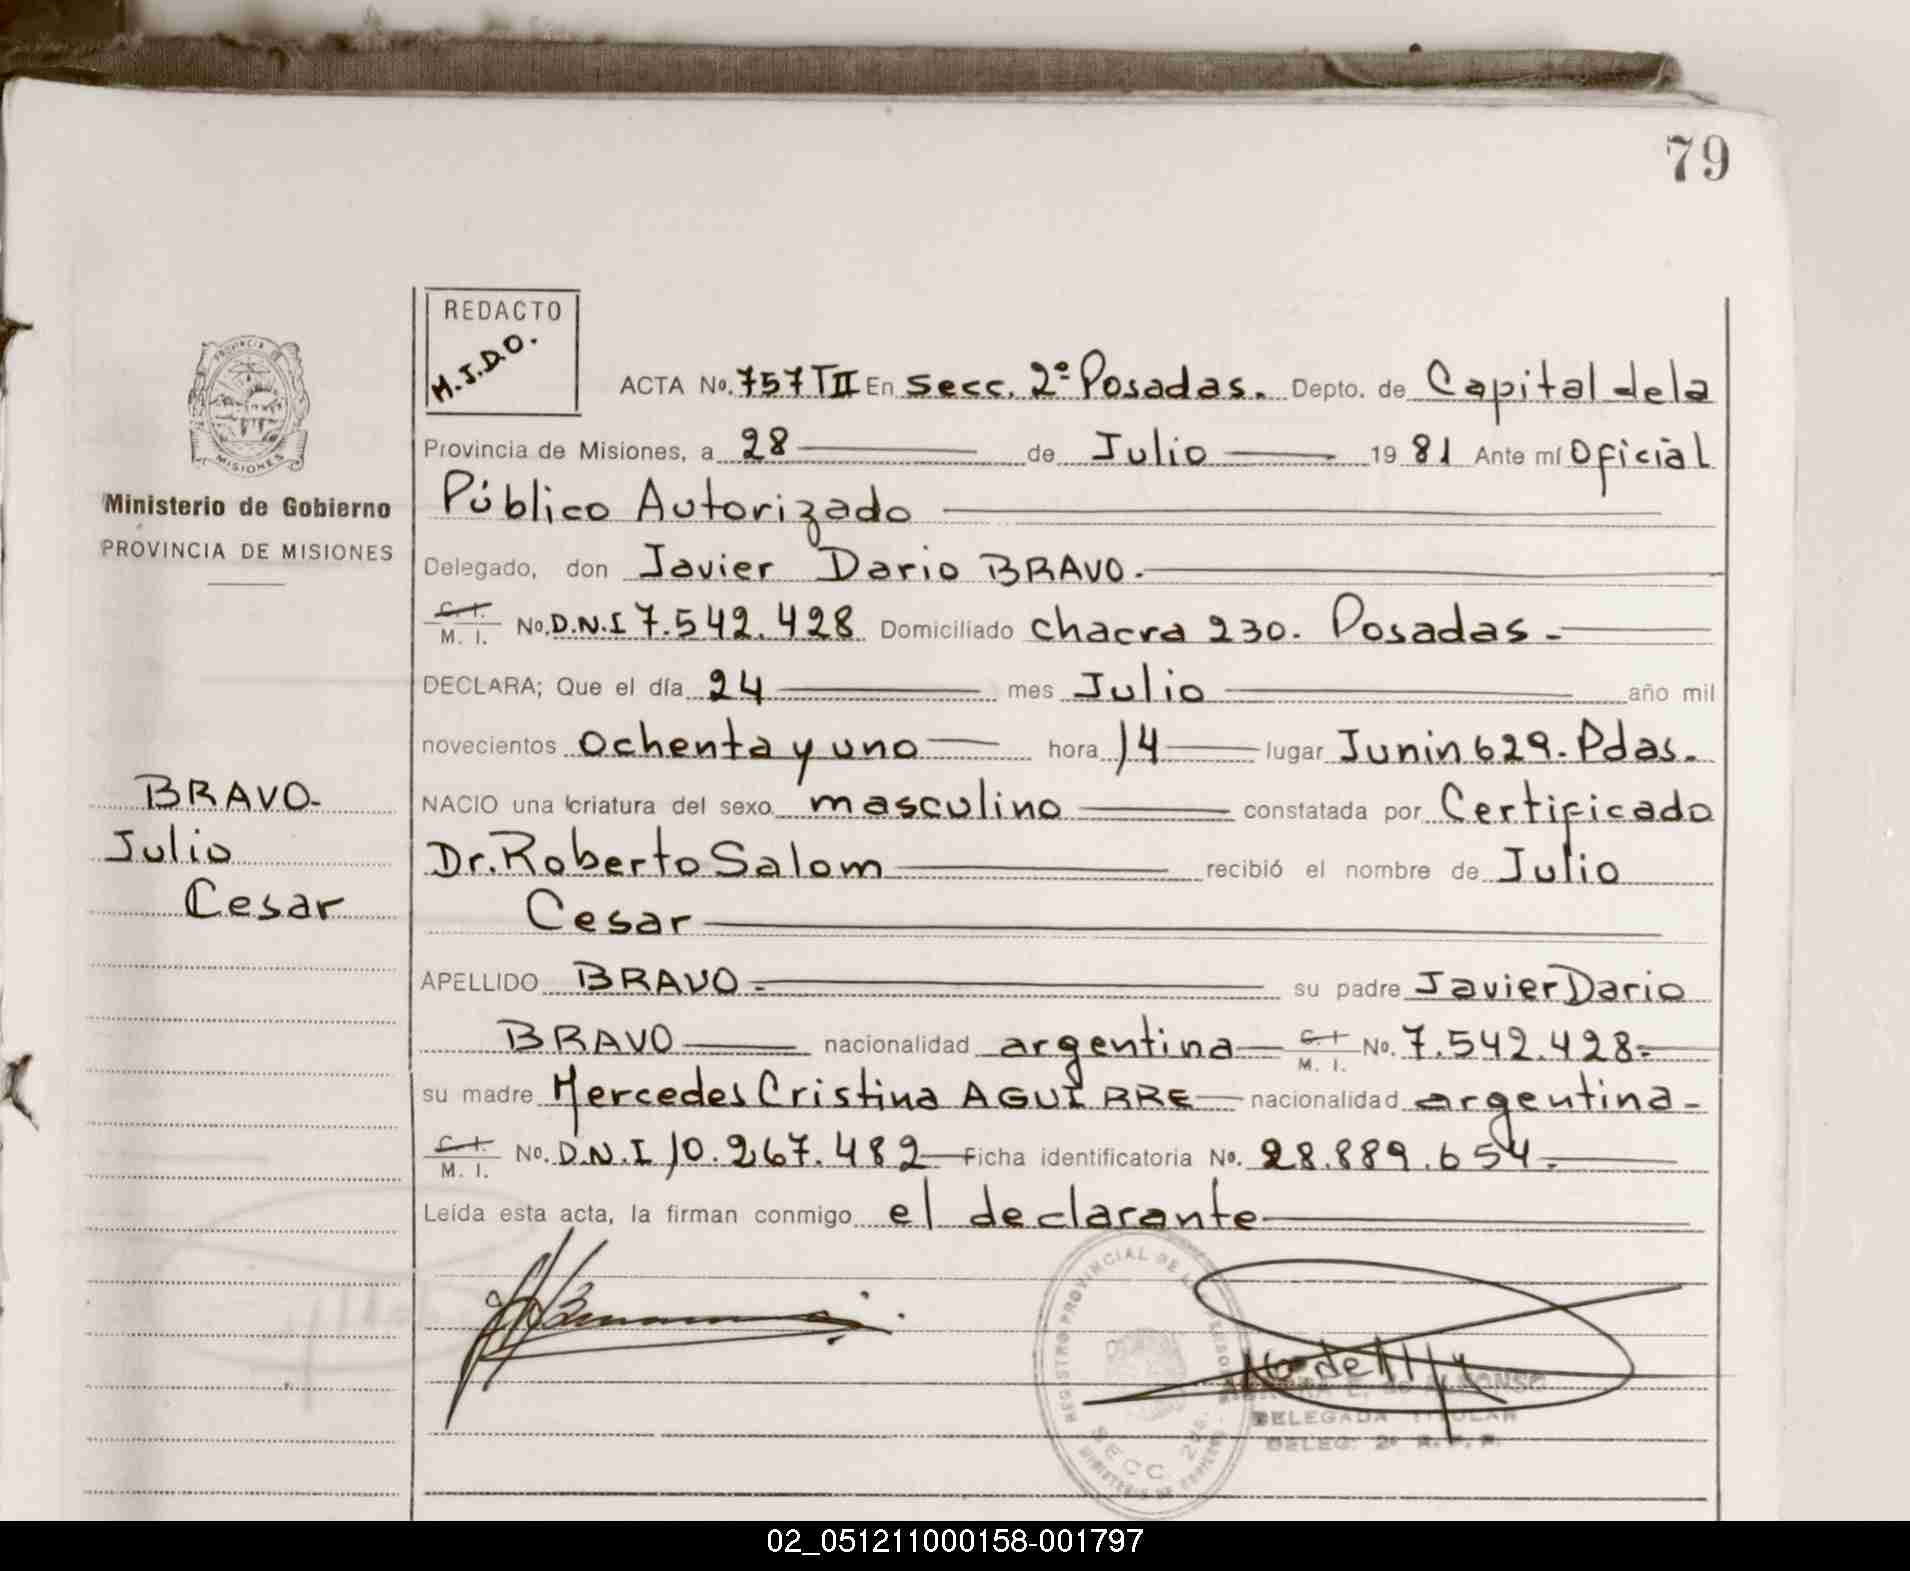 79
REDACTO
M.J.D.O.
PROVINCIA DE
MISIONES
Ministerio de Gobierno
PROVINCIA DE MISIONES
BRAVO-
Julio
Cesar
ACTA No. 757 TII En Secc. 2ª Posadas. Depto. de Capital de la
Provincia de Misiones, a 28 de Julio 1981 Ante mí Oficial
Público Autorizado
Delegado, don Javier Dario BRAVO.
C. I. M. I. No. D.N.I 7.542.428 Domiciliado chacra 230. Posadas-
DECLARA; Que el día 24 mes Julio año mil
novecientos Ochenta y uno hora 14 lugar Junin 629. Pdas.
NACIO una criatura del sexo masculino constatada por Certificado
Dr. Roberto Salom recibió el nombre de Julio
Cesar
APELLIDO BRAVO. su padre Javier Dario
BRAVO nacionalidad argentina C. I. M. I. No. 7.542.428.
su madre Mercedes Cristina AGUIRRE nacionalidad argentina-
C. I. M. I. No. D.N.I 10.267.482 Ficha identificatoria No. 28.889.654.
Leída esta acta, la firman conmigo el declarante
REGISTRO PROVINCIAL DE
SECC 2da.
DELEGADA TITULAR
DELEG. 2ª R. P. P.
02_051211000158-001797